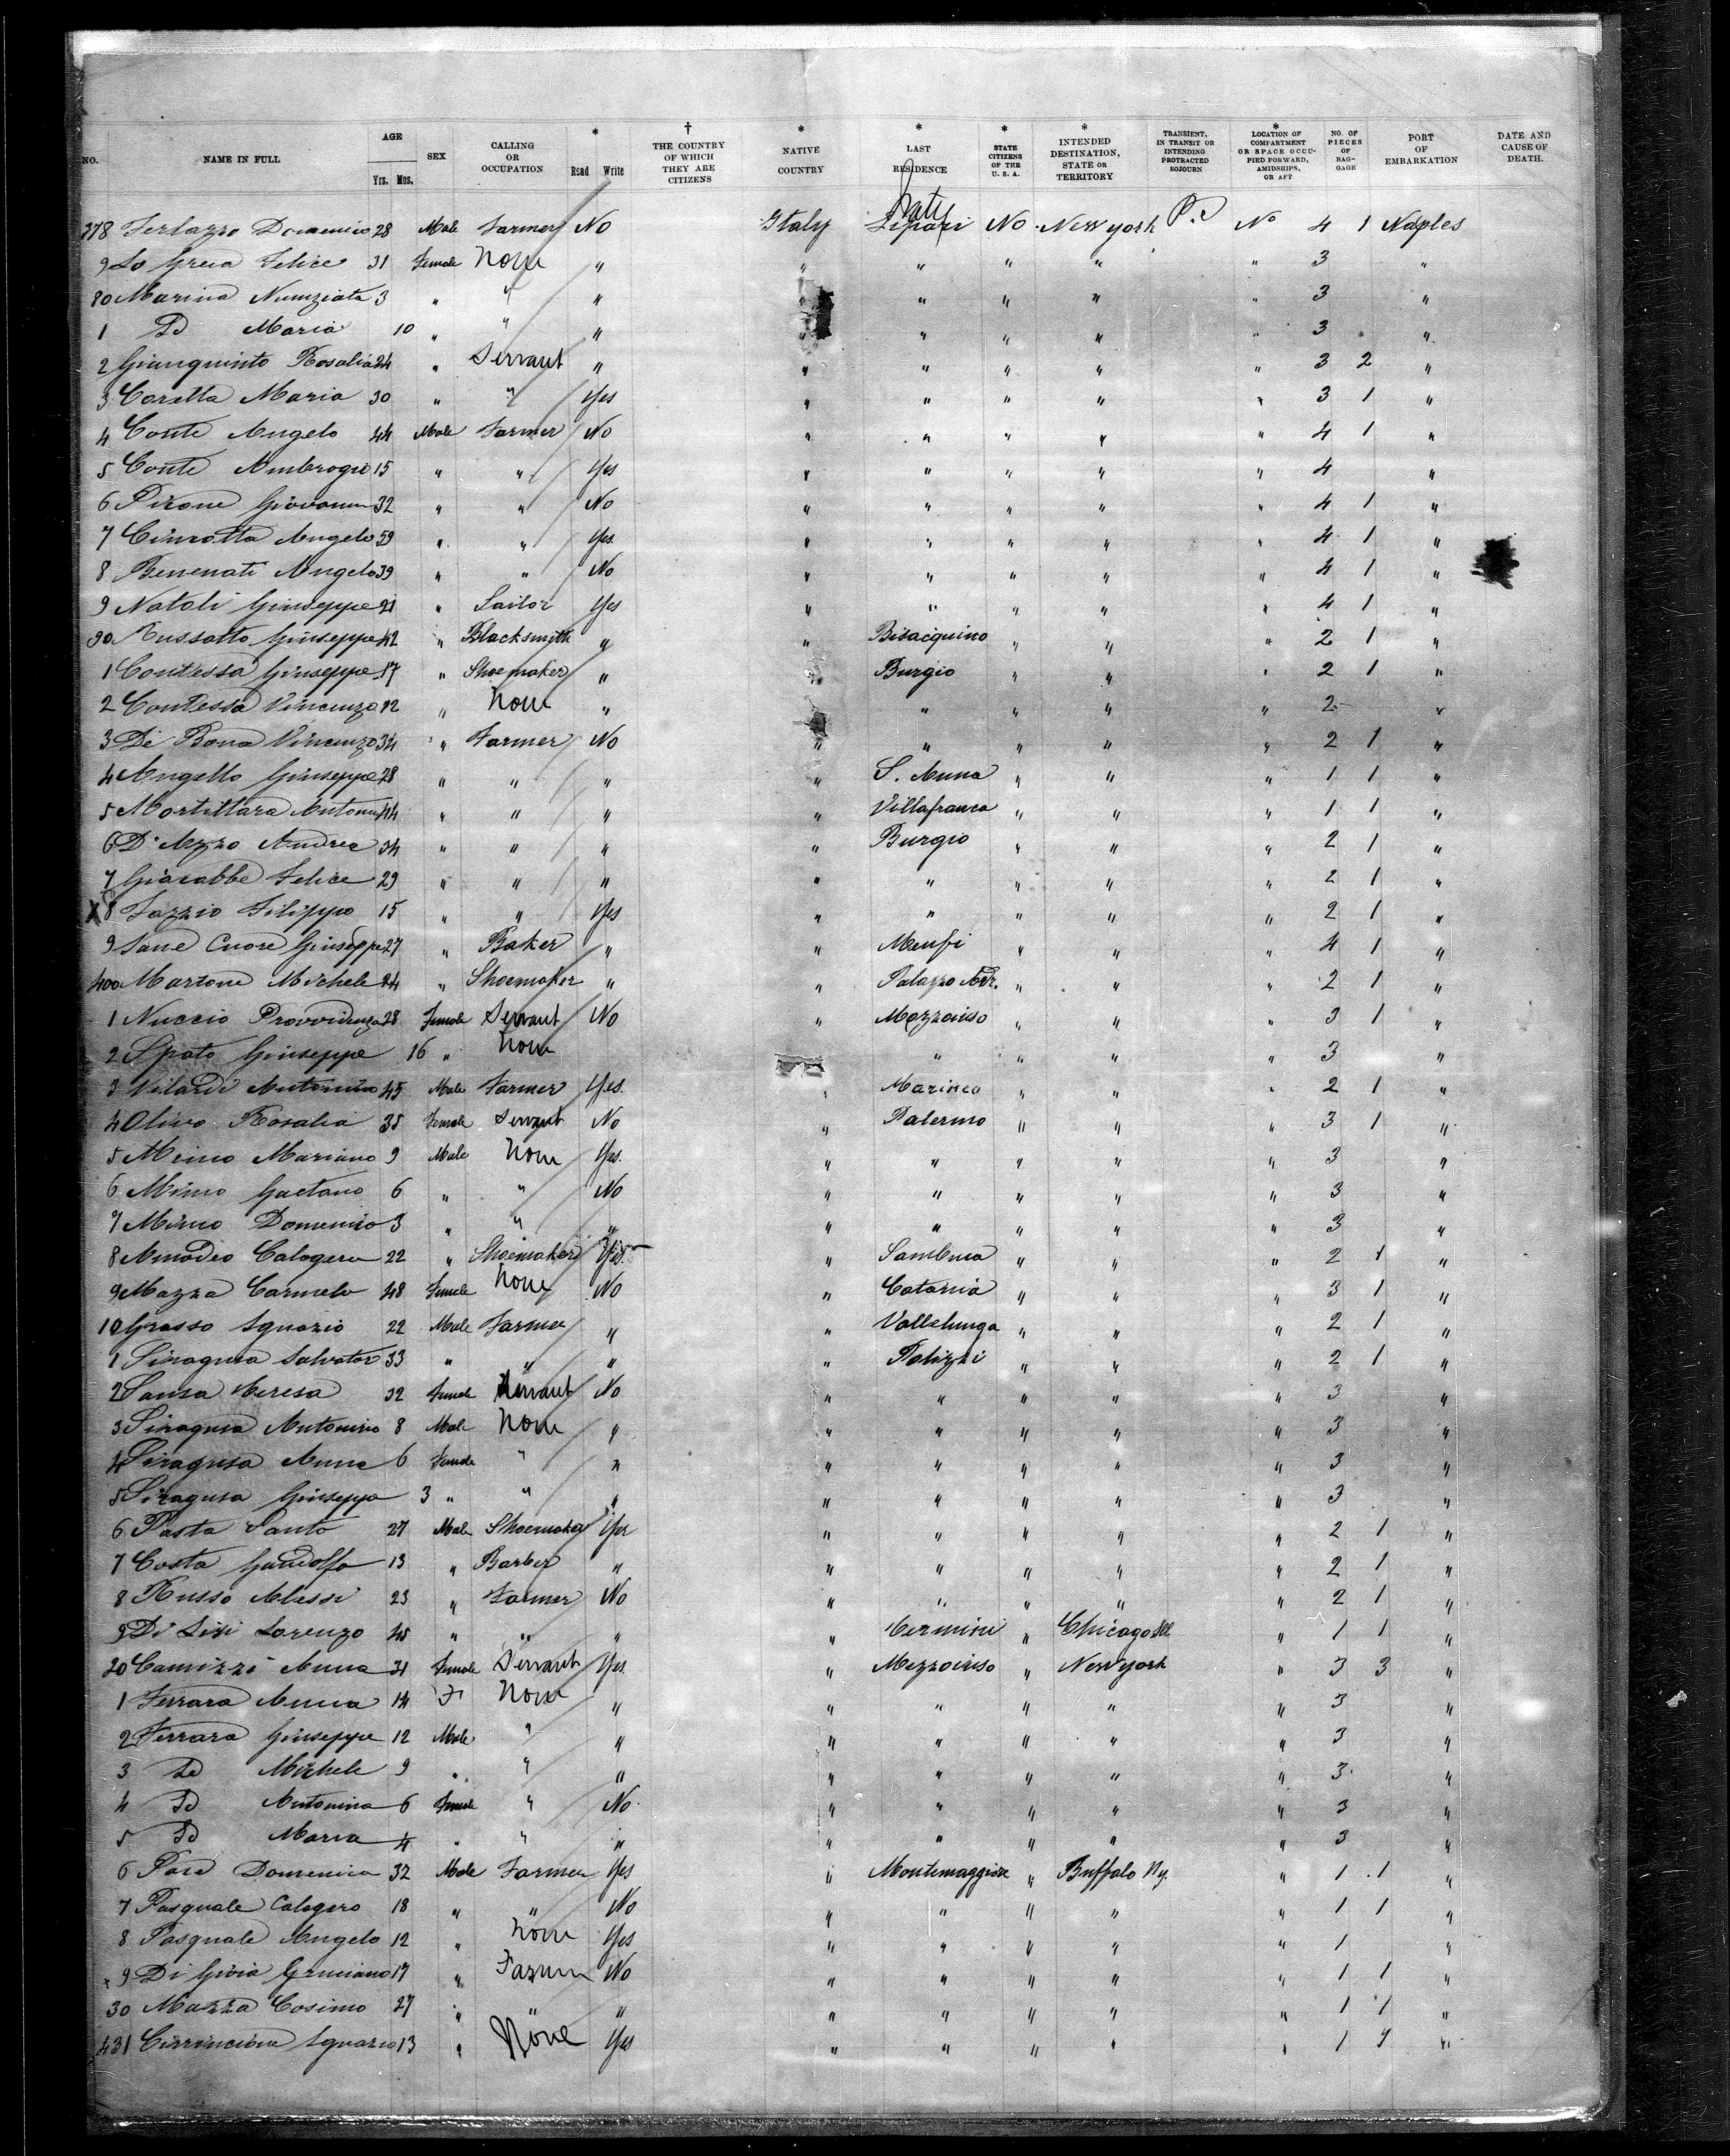 NO. NAME IN FULL AGE Yrs. Mos. SEX CALLING OR OCCUPATION * Read Write † THE COUNTRY OF WHICH THEY ARE CITIZENS * NATIVE COUNTRY * LAST RESIDENCE * STATE CITIZENS OF THE U. S. A. * INTENDED DESTINATION, STATE OR TERRITORY TRANSIENT, IN TRANSIT OR INTENDING PROTRACTED SOJOURN * LOCATION OF COMPARTMENT OR SPACE OCCUPIED FORWARD, AMIDSHIPS, OR AFT NO. OF PIECES OF BAGGAGE PORT OF EMBARKATION DATE AND CAUSE OF DEATH.
378 Domenico 28 Male Farmer No Italy Lipari No New york No 4 1 Naples
9 Lo Greca Felice 31 Female None " " " " " " 3 "
80 Marina Nunziata 3 " " " " " " " " 3 "
1 Id Maria 10 " " " " " " " " 3 "
2 Giunquinto Rosalia 24 " Servant " " " " " " 3 2 "
3 Coretta Maria 30 " " Yes " " " " " 3 1 "
4 Conte Angelo 44 Male Farmer No " " " " " 4 1 "
5 Conte Ambrogio 15 " " Yes " " " " " 4 "
6 Pirone Giovanni 32 " " No " " " " " 4 1 "
7 Cincotta Angelo 59 " " Yes " " " " " 4 1 "
8 Benenati Angelo 39 " " No " " " " " 4 1 "
9 Natoli Giuseppe 21 " Sailor Yes " " " " " 4 1 "
90 Giuseppe 42 " Blacksmith " " Bisacquino " " " 2 1 "
1 Contessa Giuseppe 17 " Shoemaker " " Burgio " " " 2 1 "
2 Contessa Vincenzo 12 " None " " " " " 2 "
3 Di Bona Vincenzo 34 " Farmer No " " " " " 2 1 "
4 Angello Giuseppe 28 " " " " S. Anna " " " 1 1 "
5 Mortillara 44 " " " " Villafranca " " " 1 1 "
6 D'Azzo Andrea 34 " " " " Burgio " " " 2 1 "
7 Giacabbe Felice 29 " " " " " " " " 2 1 "
X 8 Fazzio Filippo 15 " " Yes " " " " " 2 1 "
9 Cuore Giuseppe 27 " Baker " " Menfi " " " 4 1 "
400 Martone Michele 24 " Shoemaker " " Palazzo Adr. " " " 2 1 "
1 Nuccio Provvidenza 28 Female Servant No " Mezzoiuso " " " 3 1 "
2 Spata Giuseppe 16 " None " " " " 3 "
3 Vilardi Antonino 45 Male Farmer Yes. " Marineo " " " 2 1 "
4 Olivo Rosalia 35 Female Servant No " Palermo " " " 3 1 "
5 Mirno Mariano 9 Male None Yes. " " " " " 3 "
6 Mirno Gaetano 6 " " No " " " " " 3 "
7 Mirno Domenico 3 " " " " " " " " 3 "
8 Amodeo Calogero 22 " Shoemaker Yes. " Sambuca " " " 2 1 "
9 Mazza Carmela 48 Female None No " Catania " " " 3 1 "
10 Grasso Ignazio 22 Male Farmer " " Vallelunga " " " 2 1 "
1 Siragusa Salvator 33 " " " " Polizzi " " " 2 1 "
2 Sansa Teresa 32 Female Servant No " " " " " 3 "
3 Siragusa Antonino 8 Male None " " " " " " 3 "
4 Siragusa Anna 6 Female " " " " " " " 3 "
5 Siragusa Giuseppa 3 " " " " " " " " 3 "
6 Pasta Santo 27 Male Shoemaker Yes " " " " " 2 1 "
7 Costa Gandolfo 13 " Barber " " " " " " 2 1 "
8 Russo Alessi 23 " Farmer No " " " " " 2 1 "
9 Di Lisi Lorenzo 45 " " " " Termini " Chicago Ill " 1 1 "
20 Camizzi Anna 31 Female Servant Yes. " Mezzoiuso " New york " 3 3 "
1 Ferrara Anna 14 F None " " " " " " 3 "
2 Ferrara Giuseppe 12 Male " " " " " " " 3 "
3 Id Michele 9 " " " " " " " " 3 "
4 Id Antonina 6 Female " No " " " " " 3 "
5 Id Maria 4 " " " " " " " " 3 "
6 Pace Domenico 32 Male Farmer Yes " Montemaggiore " Buffalo Ny. " 1 1 "
7 Pasquale Calogero 18 " " No " " " " " 1 1 "
8 Pasquale Angelo 12 " None Yes " " " " " 1 "
x 9 Di Gioia Gruciano 17 " Farmer No " " " " " 1 1 "
30 Mazza Cosimo 27 " " " " " " " " 1 1 "
431 Cirrincione Ignazio 13 " None Yes " " " " " 1 1 "